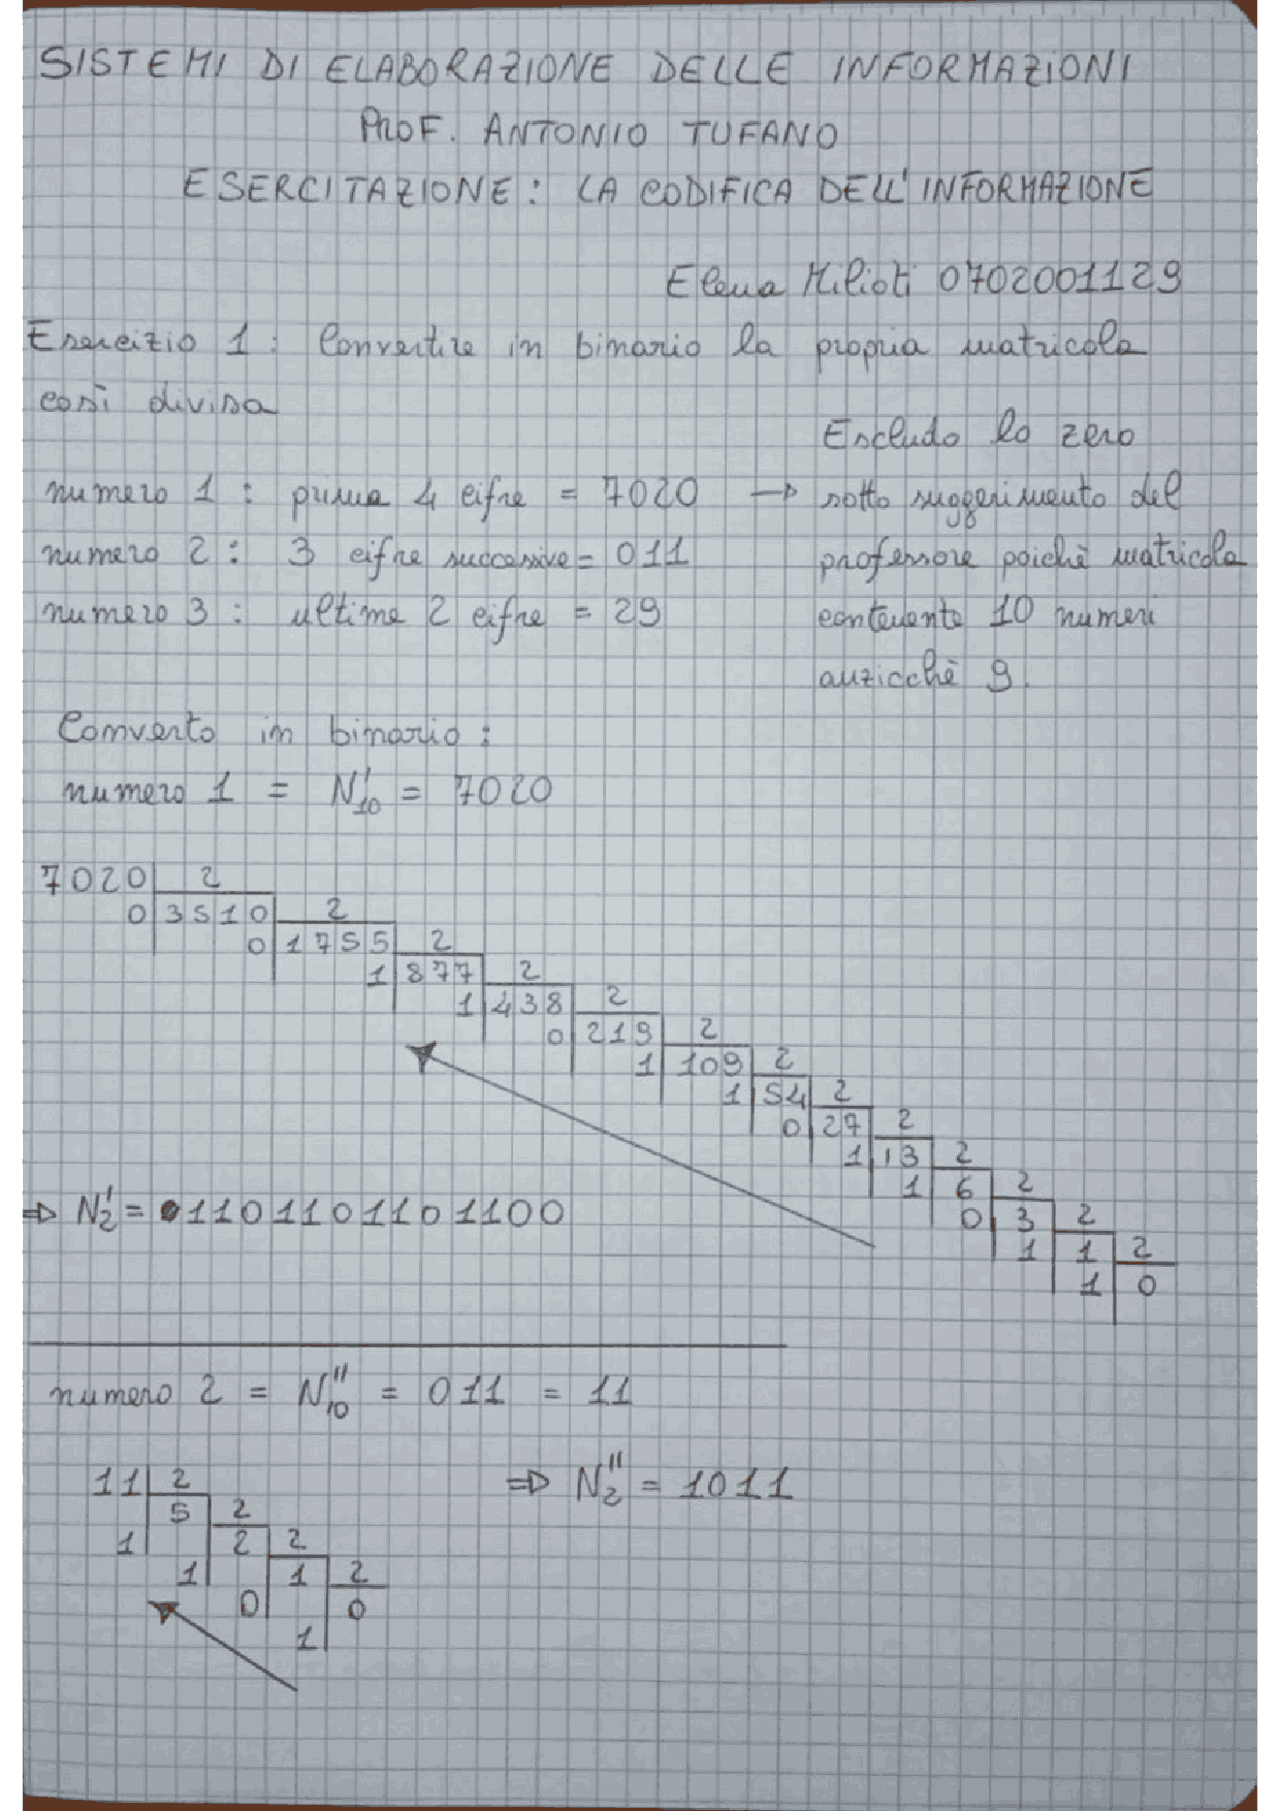 SISTEMI DI ELABORAZIONE DELLE INFORMAZIONI
PROF. ANTONIO TUFANO
ESERCITAZIONE: LA CODIFICA DELL'INFORMAZIONE
Elena Milioti 0702001129
Esercizio 1: Convertire in binario la propria matricola
così divisa
Escludo lo zero
numero 1: prime 4 cifre = 7020 → sotto suggerimento del
numero 2: 3 cifre successive = 011 professore poichè matricola
numero 3: ultime 2 cifre = 29 contenente 10 numeri
anzicchè 9.
Converto in binario:
numero 1 = N'10 = 7020
7020 2
0 3510 2
0 1755 2
1 877 2
1 438 2
0 219 2
1 109 2
1 54 2
0 27 2
1 13 2
1 6 2
0 3 2
1 1 2
1 0
⇒ N'2 = 1101101101100
numero 2 = N"10 = 011 = 11
11 2 ⇒ N"2 = 1011
5 2
1 2 2
1 1 2
0 0
1